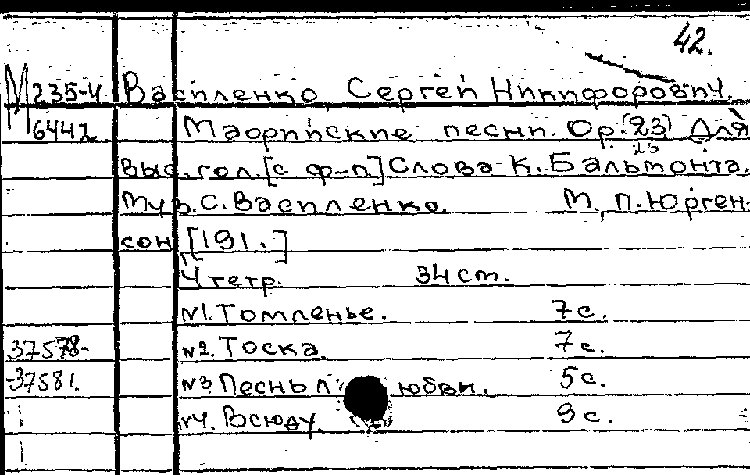 42.
М 235-4 Василенко, Сергей Никифорович.
6442 Маорийские песни. Op. (23) Для
23
выс. гол. [с ф-п] Слова К. Бальмонта.
Муз. С. Василенко. М., П. Юрген-
сон [191.]
4 тетр. 34 cm.
№1. Томленье. 7 с.
37578- №2. Тоска. 7 с.
-37581. №3 Песнь л юбви. 5 с.
№4. Всюду. 9 с.